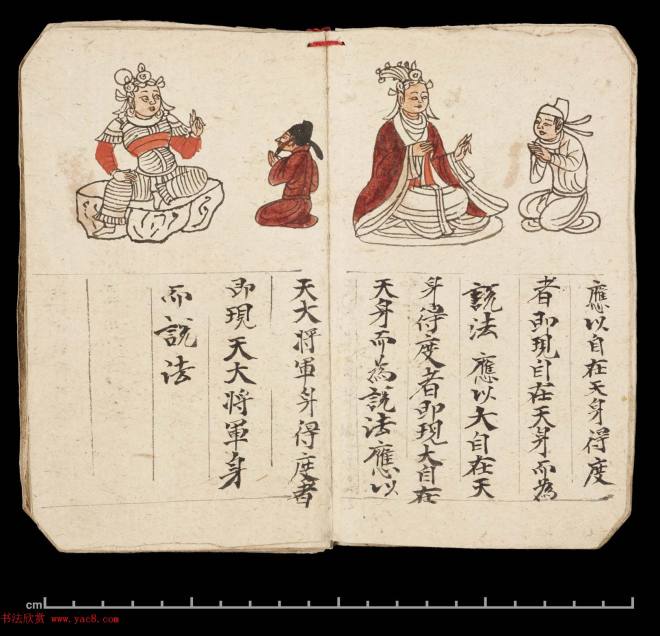 應以自在天身得度
者即現自在天身而為
說法應以大自在天
身得度者即現大自在
天身而為說法應以
天大將軍身得度者
即現天大將軍身
而說法
cm
书法欣赏 www.yac8.com